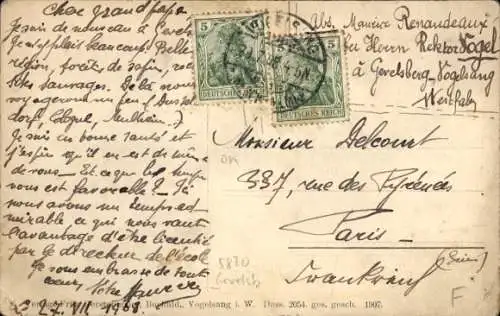 Cher grand papa
Je suis de nouveau à
Je m'y plais beaucoup. Belle
région, forêts de sapin, ro-
chers sauvages. De là nous
voyagerons un peu (Dussel
dorf, Cologne, Mülheim..)
Je suis en bonne santé et
j'espère qu'il en est de même
de vous. Et ce que le temps
vous est favorable? Ici
nous avons un temps ad
mirable ce qui nous vaut
l'avantage d'être licencié
par le directeur de l'école
Je vous embrasse de tout
cœur,
27. VII 1908
5
DEUTSCHES REICH
5
DEUTSCHES REICH
Abs. Maurice Renaudeaux
bei Herrn Rektor Vogel
à Gevelsberg Vogelsang
Westfalen
Monsieur Delcourt
337, rue des Pyrénées
Paris
(Seine)
Frankreich
5820
Gevelsb
F
Vogelsang i. W. Dess. 2054. ges. gesch. 1907.